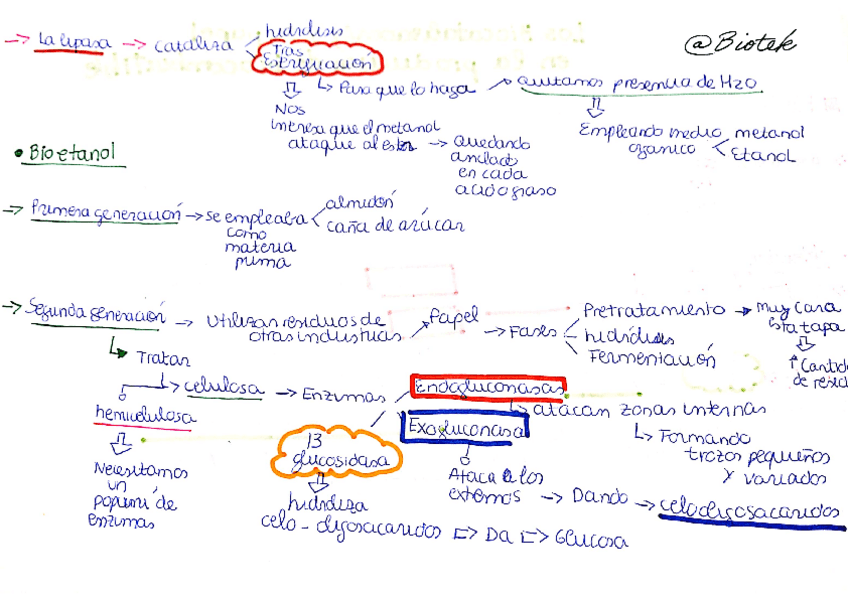 → La lipasa → cataliza < hidrólisis
Tras
Esterificación
@Biotek
↳ Para que lo haga → Quitamos presencia de H2O
Nos
interesa que el metanol
ataque al ester → Quedando
anclado
en cada
acido graso
Empleando medio
organico < metanol
Etanol
• Bioetanol
→ Primera generación → se empleaba
como
materia
prima
< almidón
caña de azúcar
→ Segunda generación → utilizar residuos de
otras industrias
→ Papel
→ Fases
Pretratamiento → Muy cara
esta tapa
↑ Cantid
de resid
hidrólisis
Fermentación
↳ Tratar
→ celulosa → Enzimas
hemicelulosa
Necesitamos
un
popurrí de
enzimas
Endogluconasas
↳ atacan zonas internas
↳ Formando
trozos pequeños
y variados
Exogluconasa
Ataca a los
extremos → Dando → celodigosacaridos
β
glucosidasa
hidroliza
celo-oligosacaridos ⇒ Da ⇒ Glucosa